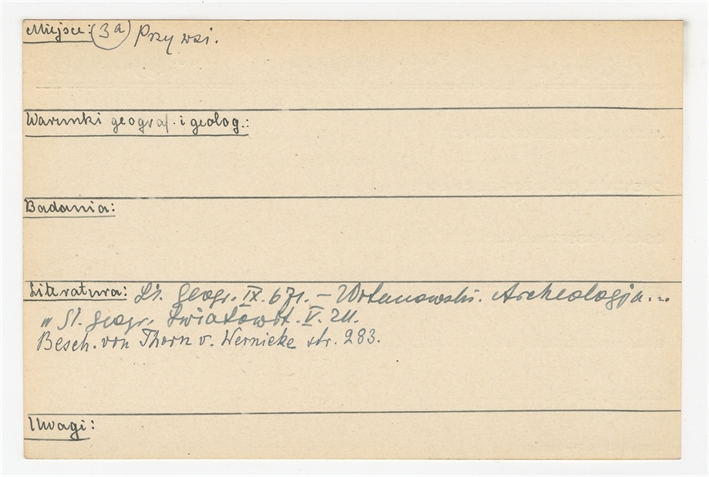 Miejsce: 3a Przy wsi.
Warunki geograf. i geolog.:
Badania:
Literatura: Sł. geogr. IX. 671. – Archeologja...
w Sł. geogr. Światowit. V.
Besch. von Thorn v. Wernicke str. 283.
Uwagi: